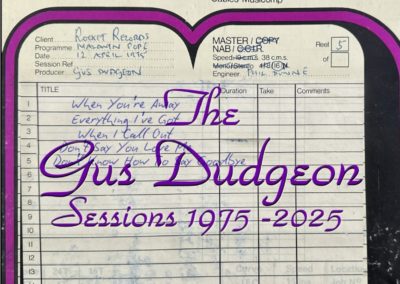 Client ROCKET RECORDS
Programme MALDWYN POPE
Date 12 APRIL 1975
Session Ref
Producer GUS DUDGEON
MASTER / COPY
NAB / C.C.I.R.
Speed 38 c.m.s.
Engineer PHIL DUNNE
Reel 5
of
TITLE Duration Take Comments
1 When You're Away
2 Everything I've Got
3 When I Call Out
4 Don't Say You Love Me
5 Don't Know How To Say Goodbye
6
7
8
9
10
11
12
13
The
Gus Dudgeon
Sessions 1975 - 2025